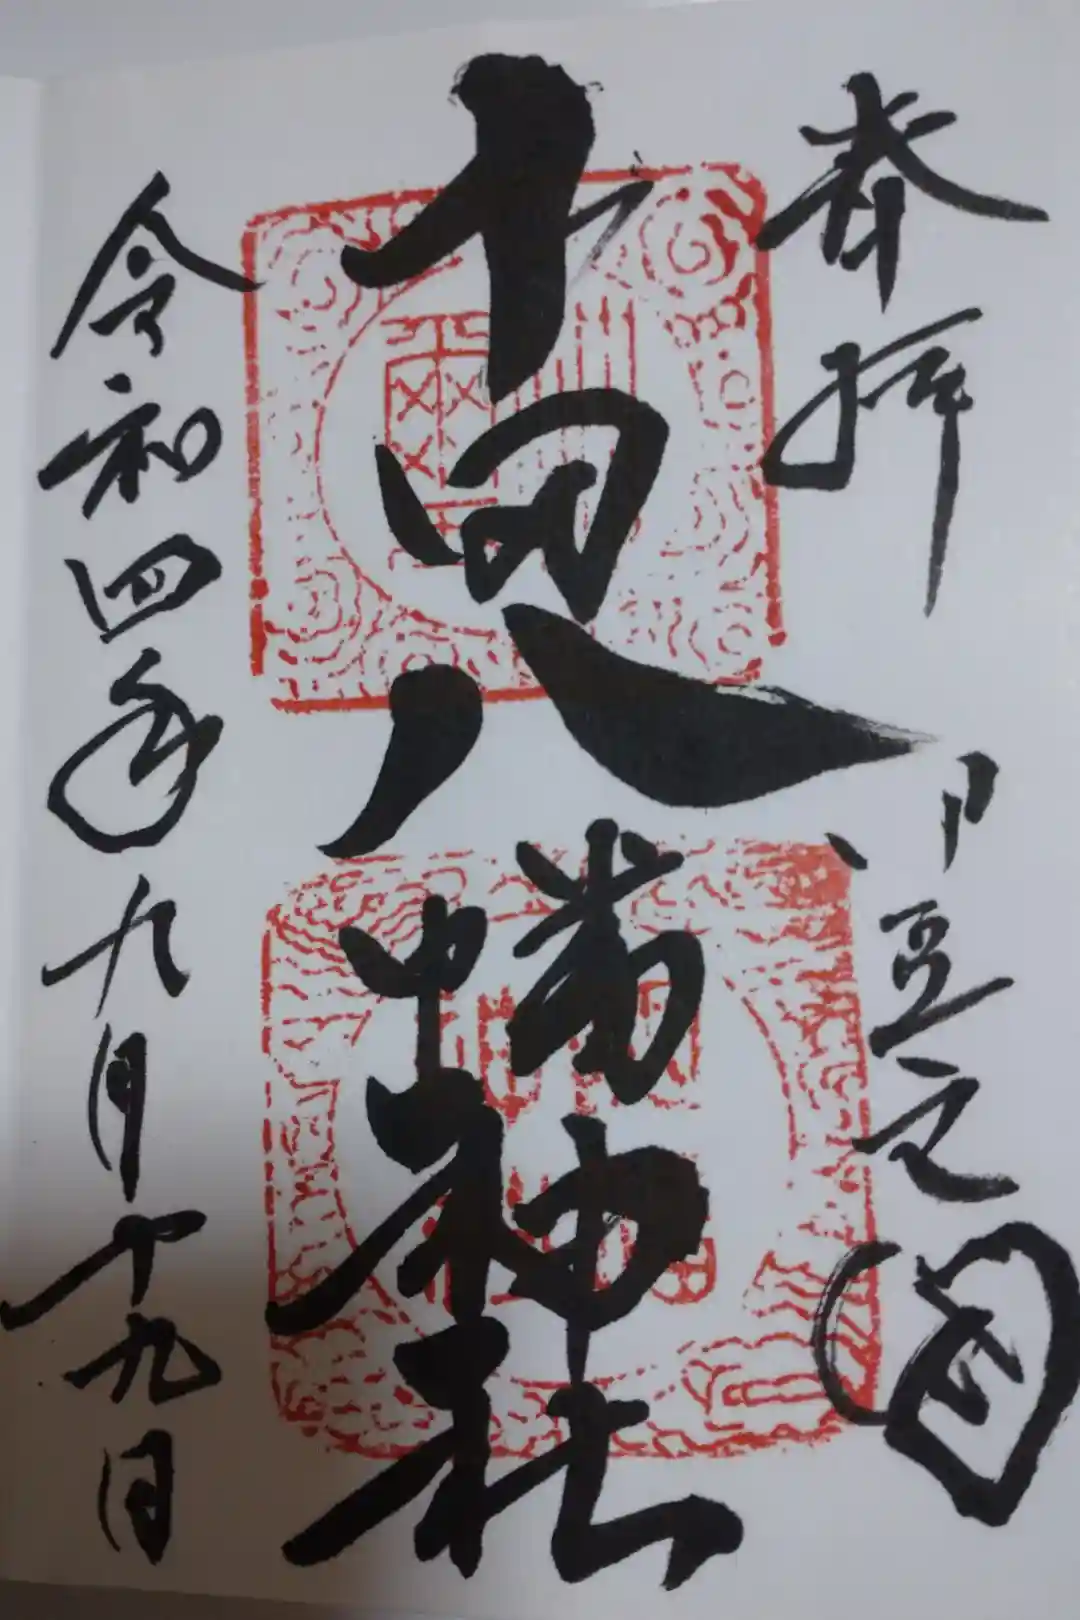 奉拝　伊豆之國
下田八幡神社
令和四年九月十九日